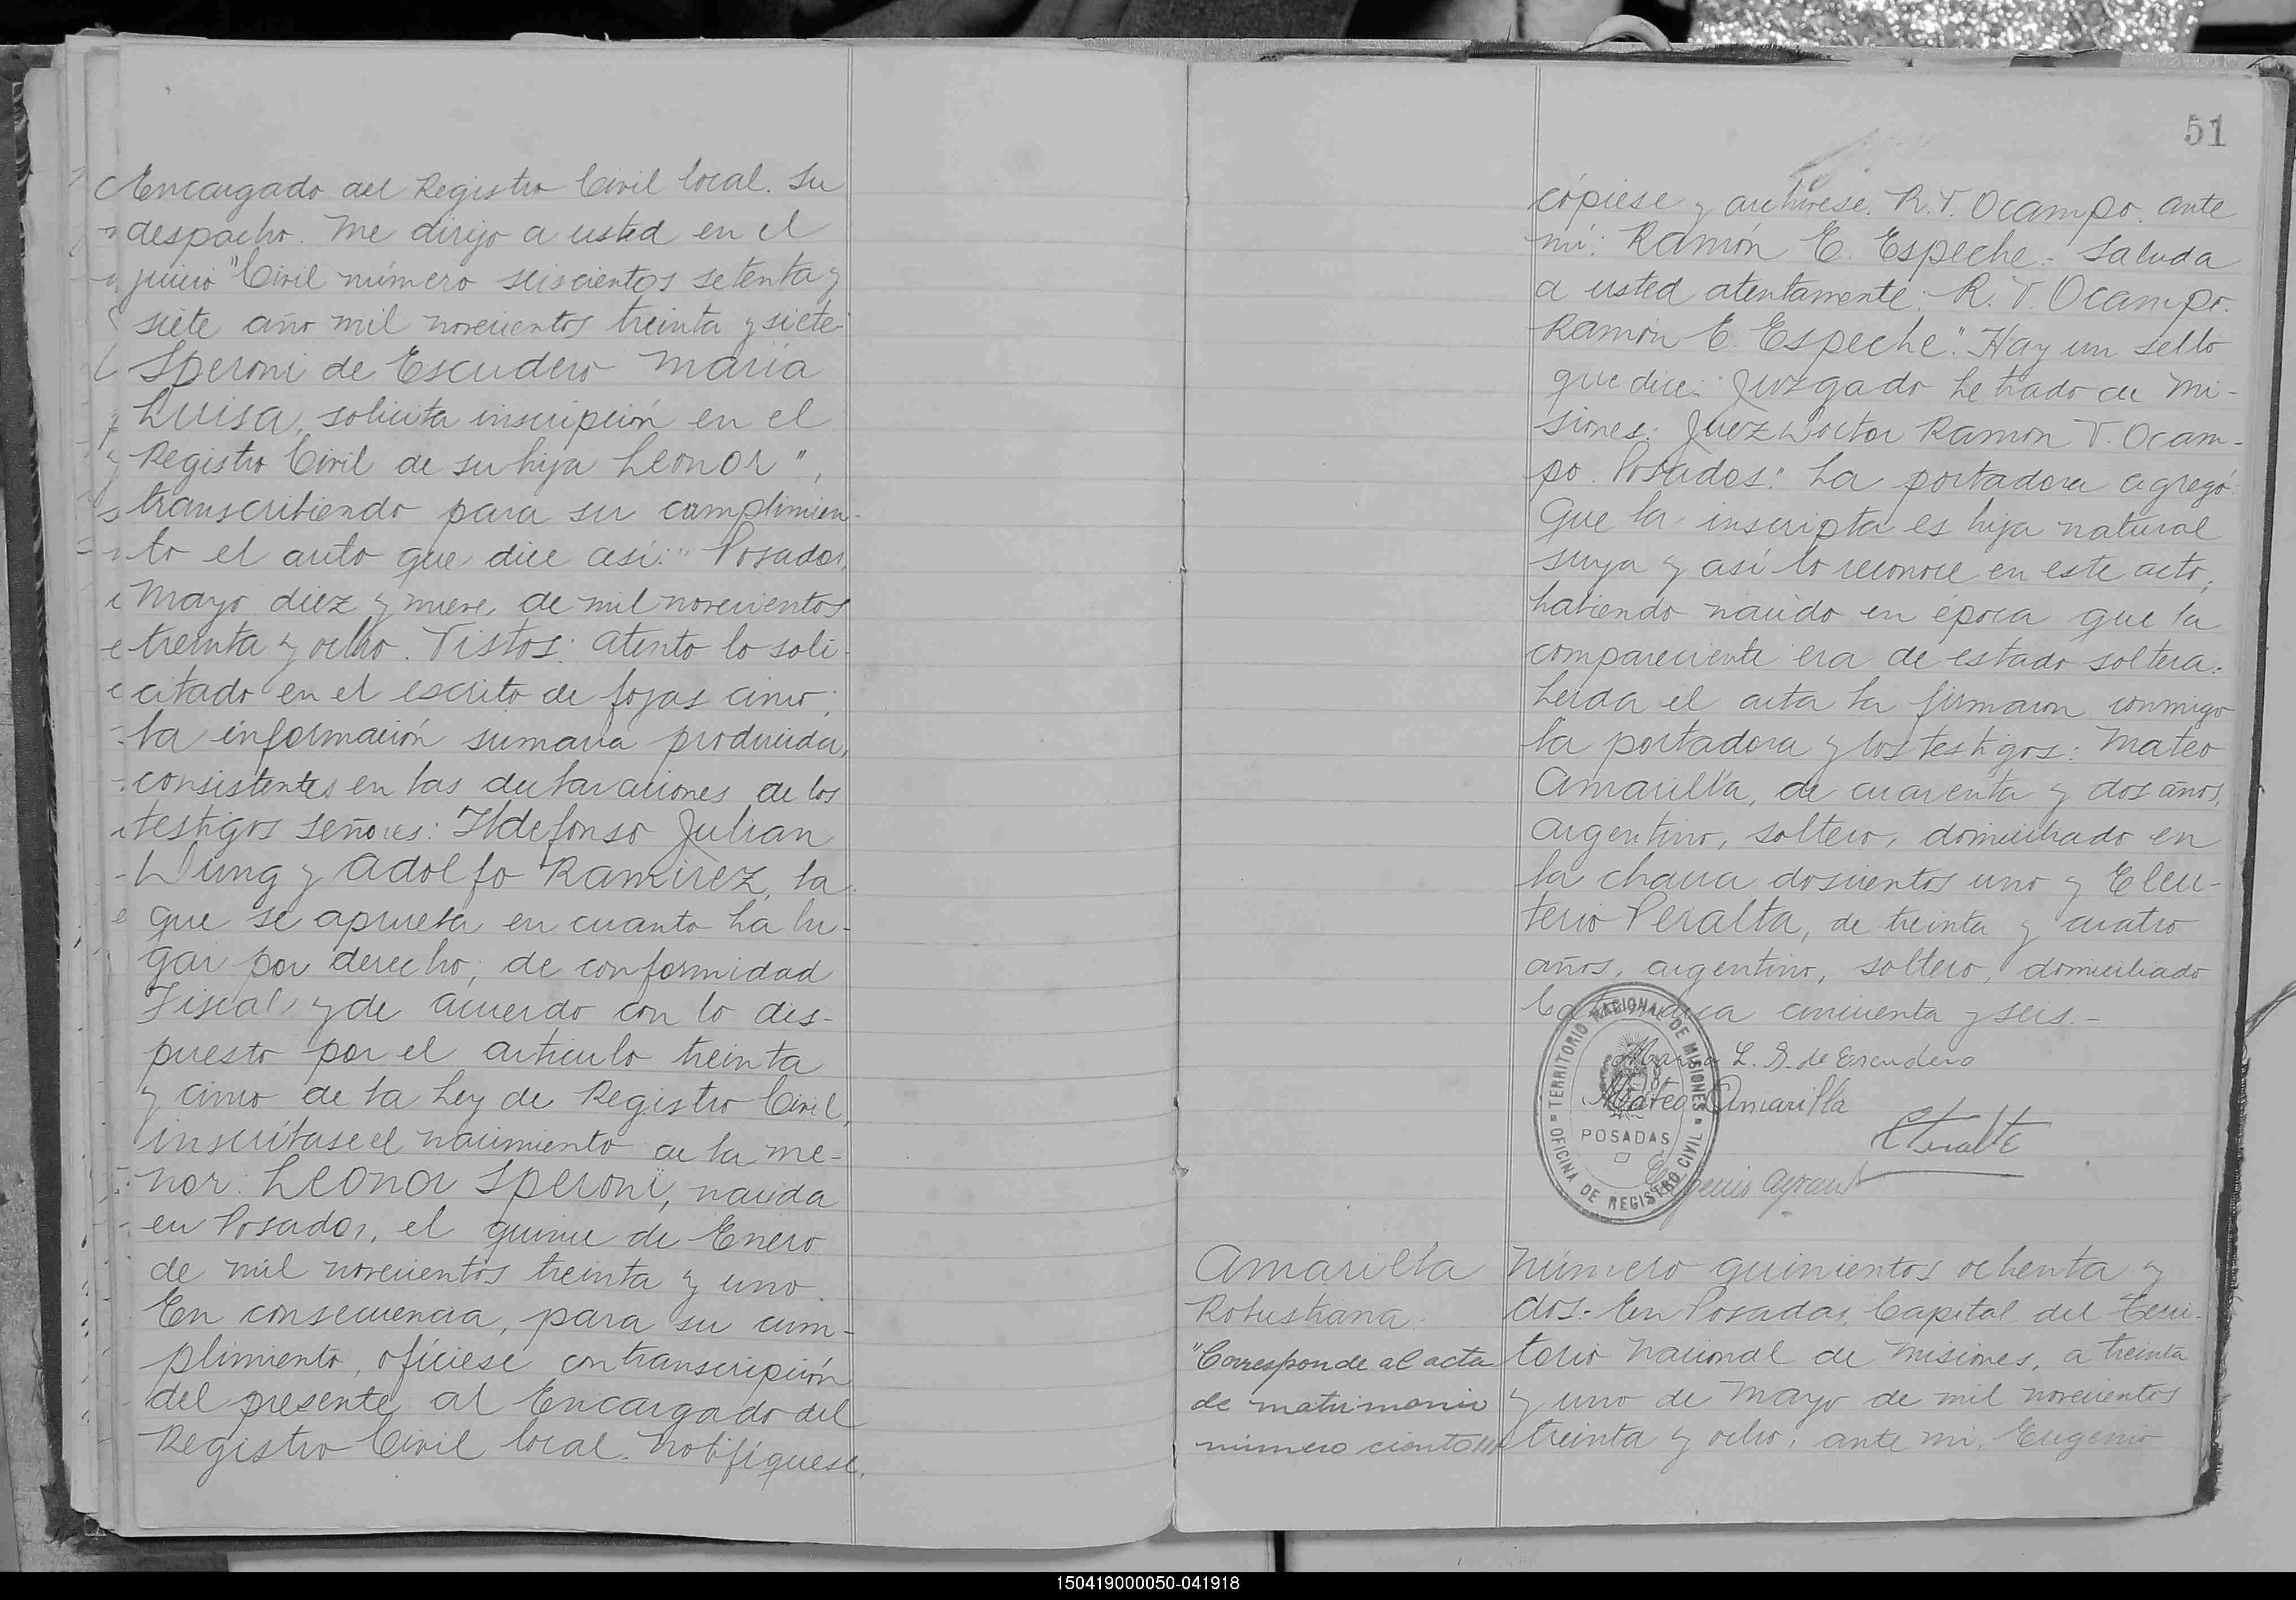 Encargado del Registro Civil local. Su
despacho. Me dirijo a usted en el
juicio "Civil número seiscientos setenta y
siete año mil novecientos treinta y siete
Speroni de Escudero Maria
Luisa, solicita inscripción en el
Registro Civil de su hija Leonor",
transcribiendo para su cumplimien-
to el auto que dice así: "Posadas,
Mayo diez y nueve, de mil novecientos
treinta y ocho. Vistos: atento lo soli-
citado en el escrito de fojas cinco;
la información sumaria producida,
consistentes en las declaraciones de los
testigos señores: Ildefonso Julian
Dung y Adolfo Ramirez, la
que se aprueba en cuanto ha lu-
gar por derecho; de conformidad
Fiscal y de acuerdo con lo dis-
puesto por el articulo treinta
y cinco de la Ley de Registro Civil,
inscríbase el nacimiento de la me-
nor: Leonor Speroni, nacida
en Posadas, el quince de Enero
de mil novecientos treinta y uno.
En consecuencia, para su cum-
plimiento, ofíciese con transcripción
del presente al Encargado del
Registro Civil local. Notifíquese,
51
cópiese y archivese. R. T. Ocampo. ante
mí: Ramón E. Espeche.- Saluda
a usted atentamente. R. T. Ocampo.
Ramón E. Espeche". Hay un sello
que dice: "Juzgado Letrado de Mi-
siones. Juez Doctor Ramon T. Ocam-
po. Posadas." La portadora agregó:
Que la inscripta es hija natural
suya y así lo reconoce en este acto,
habiendo nacido en época que la
compareciente era de estado soltera.
Leida el acta la firmaron conmigo
la portadora y los testigos: Mateo
Amarilla, de cuarenta y dos años,
argentino, soltero, domiciliado en
la chacra doscientos uno y Eleu-
terio Peralta, de treinta y cuatro
años, argentino, soltero, domiciliado
cincuenta y seis.-
Maria L. S. de Escudero
Mateo Amarilla
TERRITORIO NACIONAL DE MISIONES
POSADAS
OFICINA DE REGISTRO CIVIL
Amarilla
Robustiana.
"Corresponde al acta
de matrimonio
número ciento///
Número quinientos ochenta y
dos.- En Posadas, Capital del Terri-
torio Nacional de Misiones, a treinta
y uno de Mayo de mil novecientos
treinta y ocho, ante mi, Eugenio
150419000050-041918